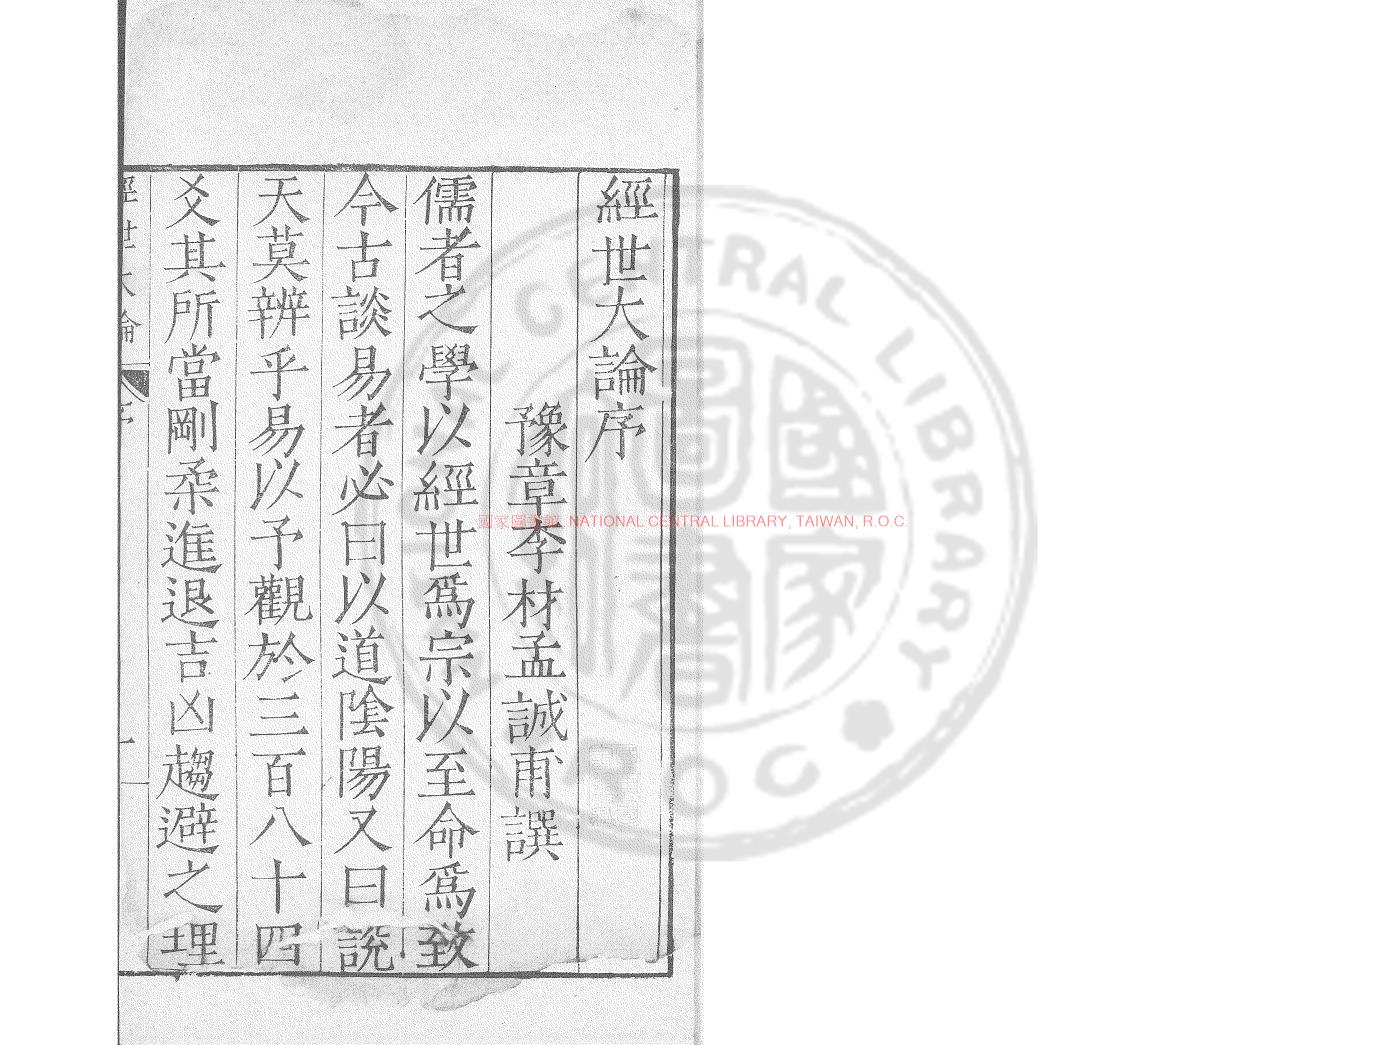 經世大論序
豫章李材孟誠甫譔
儒者之學以經世爲宗以至命爲致
今古談易者必曰以道陰陽又曰説
天莫辨乎易以予觀於三百八十四
爻其所當剛柔進退吉凶趨避之理
經世大論
序
一
國家圖書館 NATIONAL CENTRAL LIBRARY, TAIWAN, R.O.C.
國家圖書
CENTRAL LIBRARY
R.O.C.